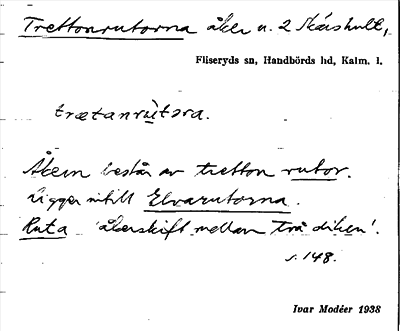 Trettonrutorna åker u. 2 Skårshult,
Fliseryds sn, Handbörds hd, Kalm. l.
trætanrùtɔra.
Åkern består av tretton rutor.
Ligger intill Elvarutorna.
Ruta 'åkerskift mellan två diken'.
s. 148.
Ivar Modéer 1938